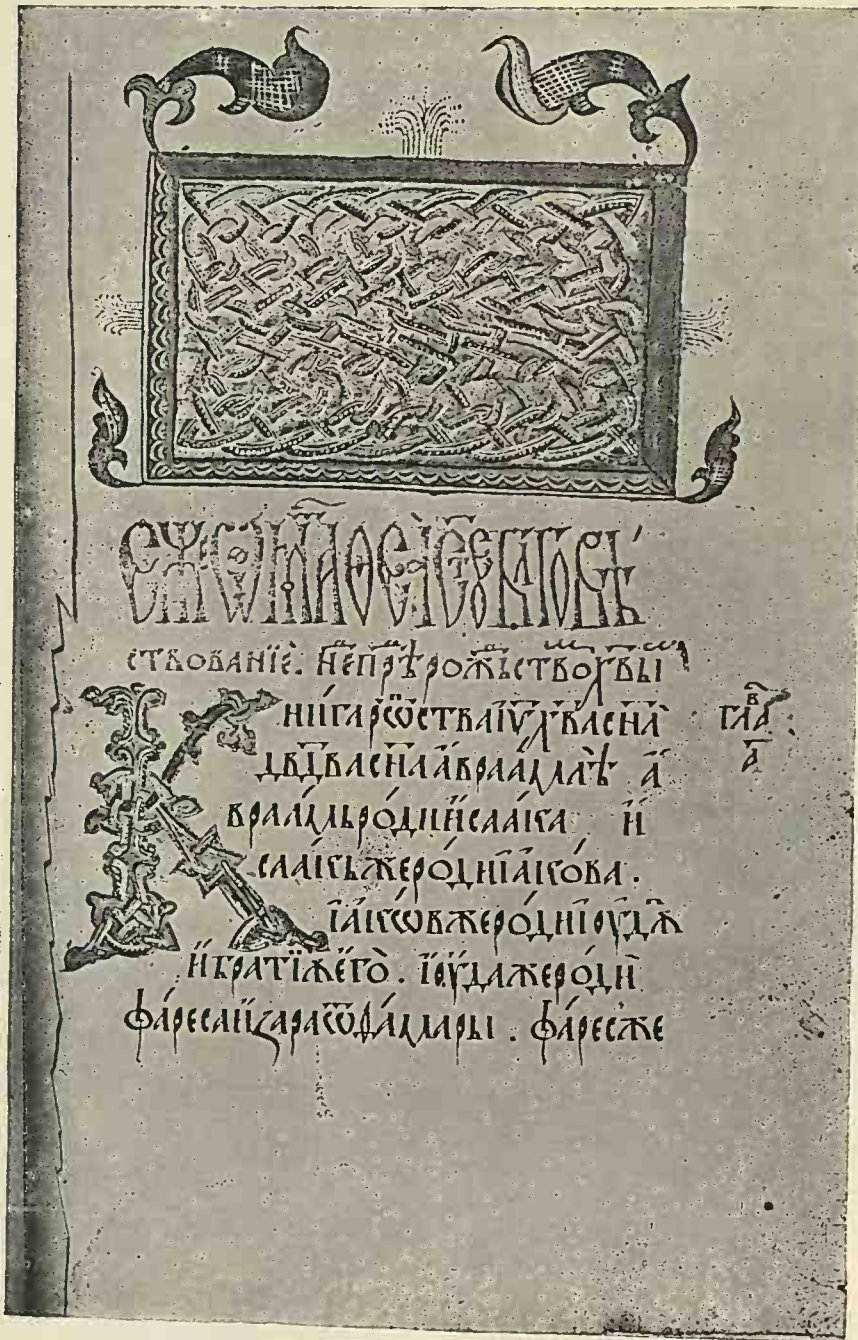 еѵⷢ҇е ѿ маⷴ҇ѳеа ст҃ое благовѣ
ствованїе. нⷣе прⷣѣ рожⷣьством хⷭ҇вы
Книга рⷪ҇ства іѵ҃ х҃ва сн҃а
дв҃два сн҃а авраамлѣ а
враамьроди исаака и
саакъжероди іакѡва.
іакѡвжероди іоудѫ
и братїѫ его. іоудажероди
фареса и зара ѿ фамары. фаресже
глаⷡ҇
а҃